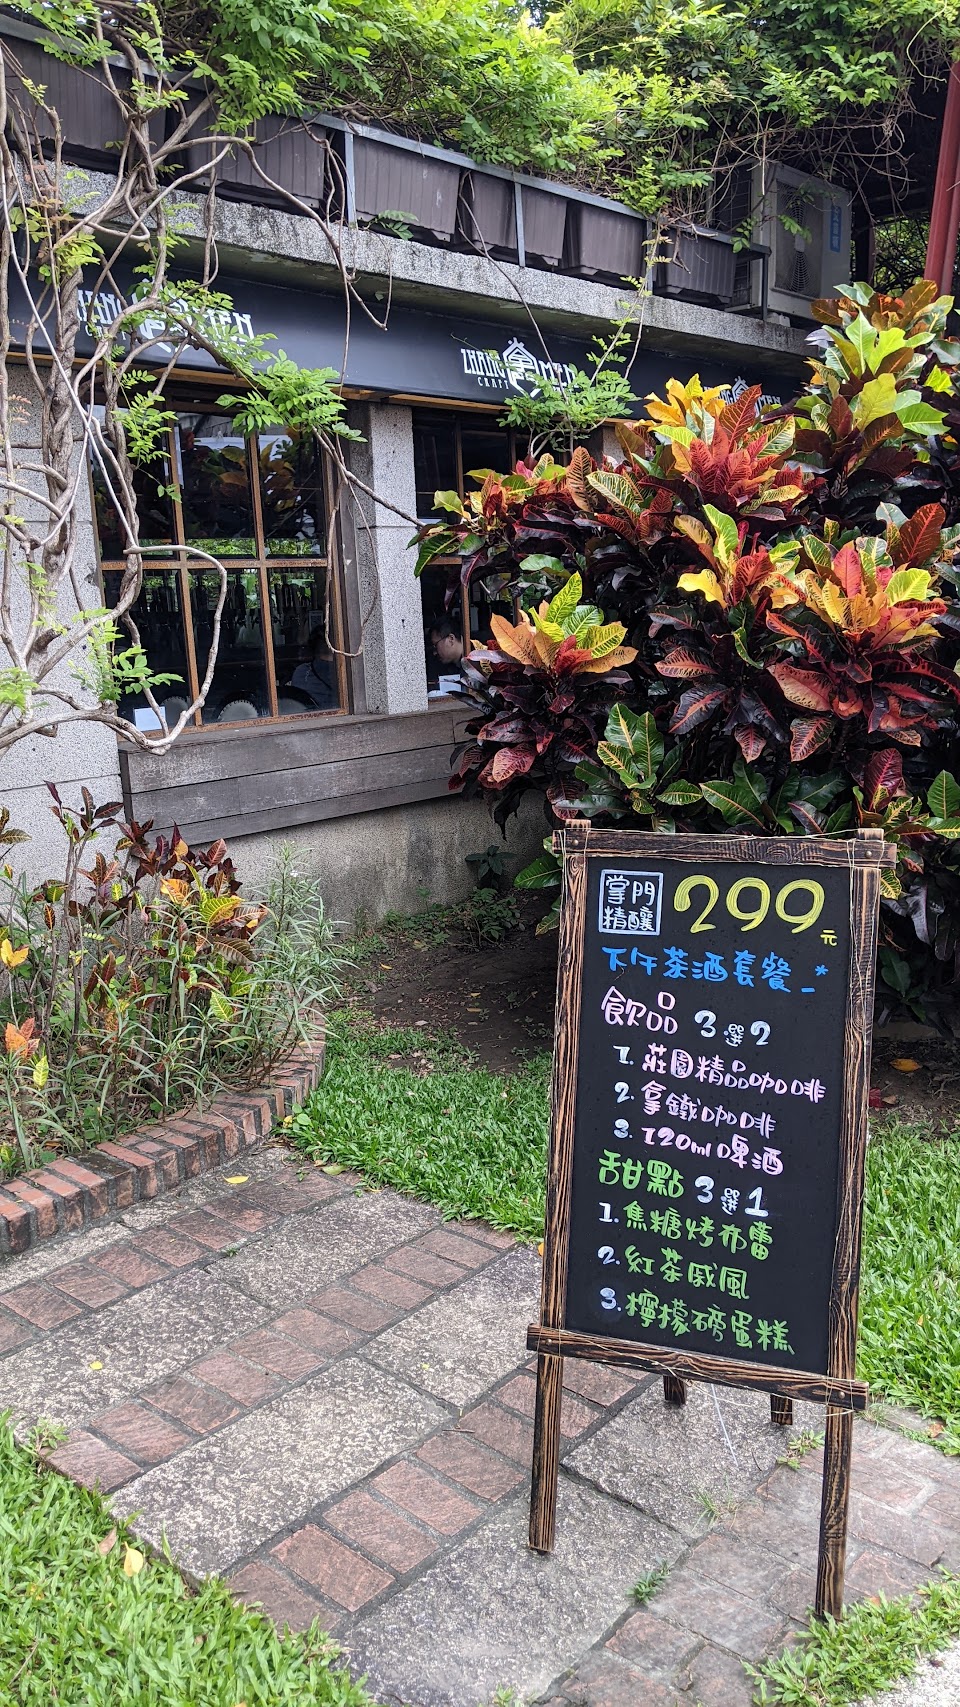 ZHANG 掌 MEN
CRAFT
掌門
精釀
299元
下午茶酒套餐_*
飲品 3選2
1. 莊園精品咖啡
2. 拿鐵咖啡
3. 120ml啤酒
甜點 3選1
1. 焦糖烤布蕾
2. 紅茶戚風
3. 檸檬磅蛋糕